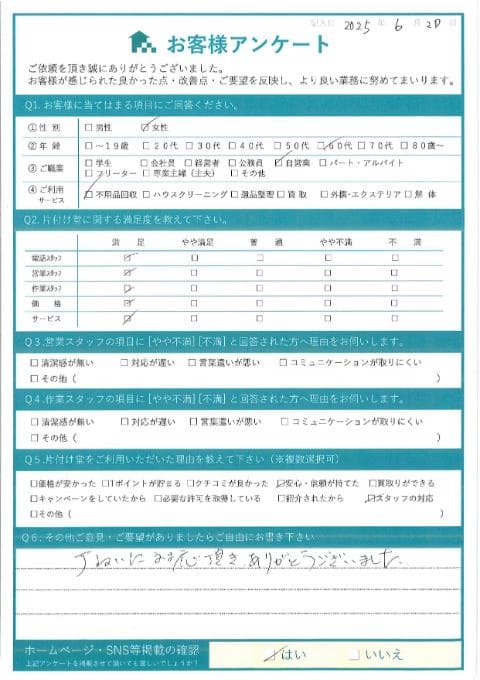 記入日 2025年 6月 20日
お客様アンケート
ご依頼を頂き誠にありがとうございました。
お客様が感じられた良かった点・改善点・ご要望を反映し、より良い業務に努めてまいります。
Q1. お客様に当てはまる項目にご回答ください。
①性 別 □男性 ☑女性
②年 齢 □~19歳 □20代 □30代 □40代 □50代 ☑60代 □70代 □80歳~
③ご職業 □学生 □会社員 □経営者 □公務員 ☑自営業 □パート・アルバイト
□フリーター □専業主婦(主夫) □その他
④ご利用サービス ☑不用品回収 □ハウスクリーニング □遺品整理 □買 取 □外構・エクステリア □解 体
Q2. 片付け堂に関する満足度を教えて下さい。
満 足 やや満足 普 通 やや不満 不 満
電話スタッフ ☑ □ □ □ □
営業スタッフ ☑ □ □ □ □
作業スタッフ ☑ □ □ □ □
価 格 ☑ □ □ □ □
サービス ☑ □ □ □ □
Q3.営業スタッフの項目に[やや不満][不満]と回答された方へ理由をお伺いします。
□清潔感が無い □対応が遅い □言葉遣いが悪い □コミュニケーションが取りにくい
□その他( )
Q4.作業スタッフの項目に[やや不満][不満]と回答された方へ理由をお伺いします。
□清潔感が無い □対応が遅い □言葉遣いが悪い □コミュニケーションが取りにくい
□その他( )
Q5.片付け堂をご利用いただいた理由を教えて下さい(※複数選択可)
□価格が安かった □Tポイントが貯まる □クチコミが良かった ☑安心・信頼が持てた □買取りができる
□キャンペーンをしていたから □必要な許可を取得している □紹介されたから ☑スタッフの対応
□その他( )
Q6:その他ご意見・ご要望がありましたらご自由にお書き下さい
頂き ありがとうございました。
ホームページ・SNS等掲載の確認 ☑はい □いいえ
上記アンケートを掲載させて頂いても宜しいでしょうか?